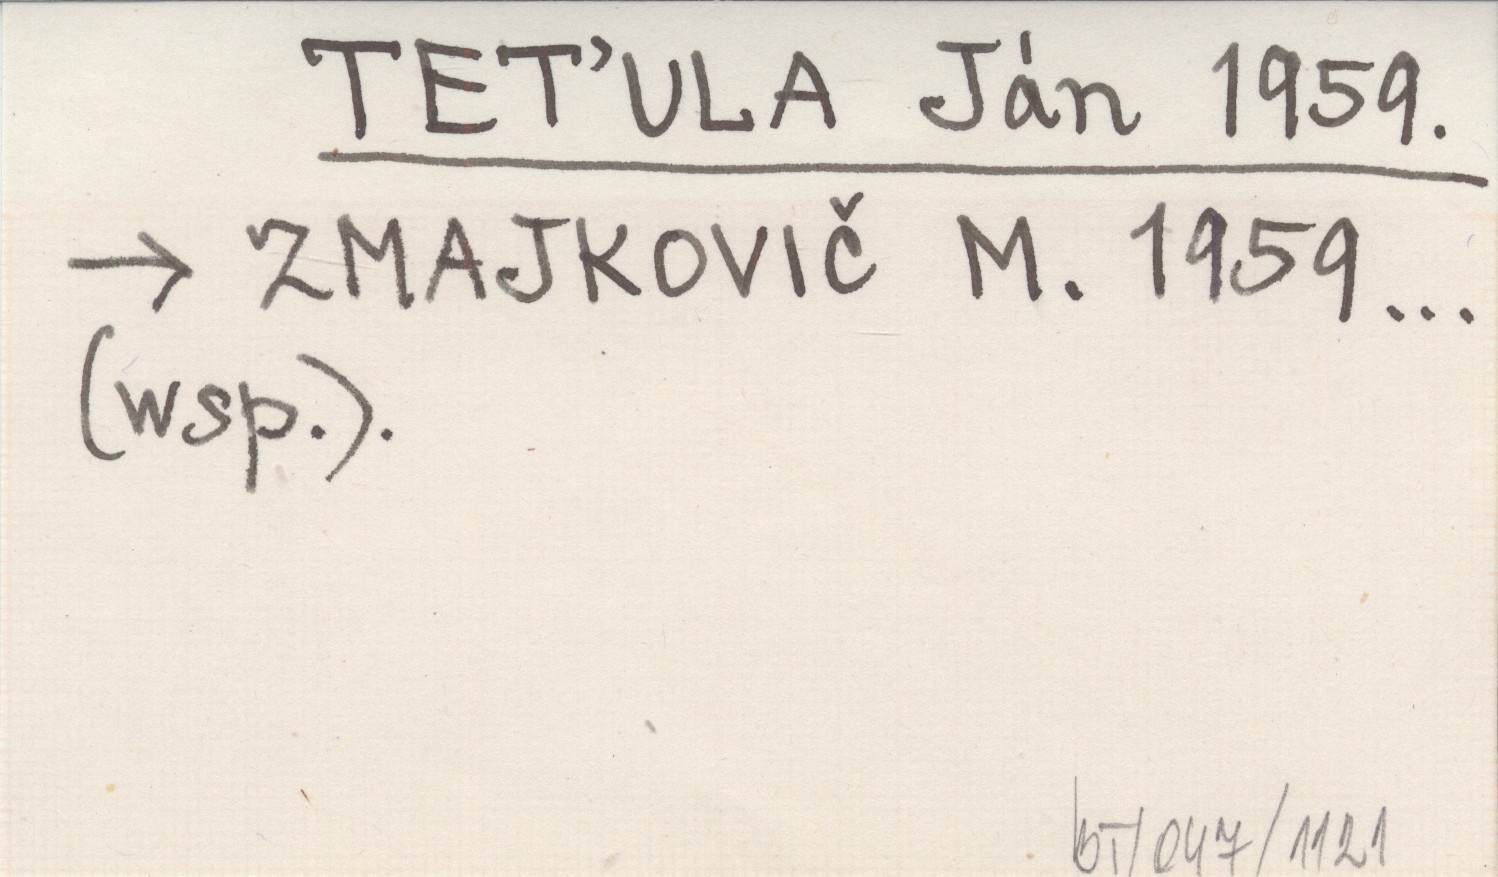 TEŤULA Ján 1959.
→ ZMAJKOVIČ M. 1959...
(wsp.).
bT/047/1121